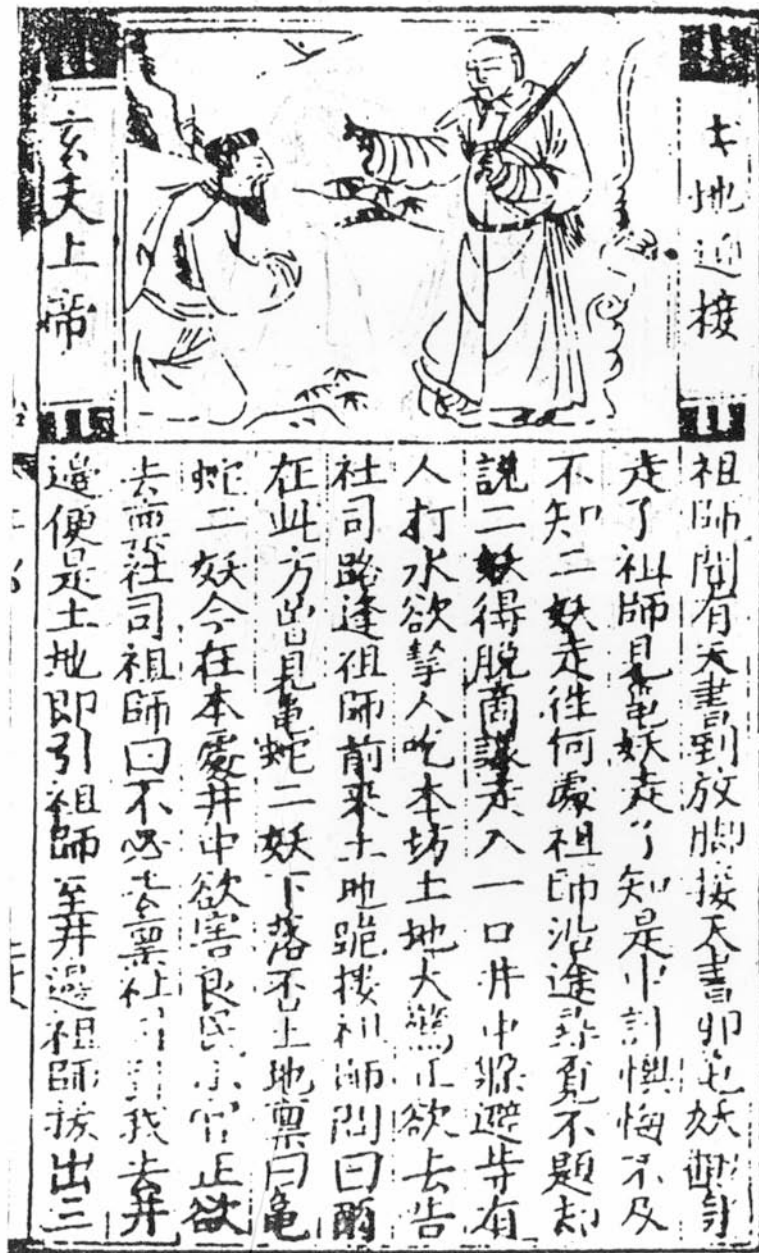 土地迎接
玄天上帝
祖師聞有天書到放脚接天書却也妖
走了祖師見龜妖走了知是中計懊悔不及
不知二妖走往何處祖師沿途尋覓不題却
說二妖得脱商議走入一口井中躱避等有
人打水欲拏人吃本坊土地大驚正欲去告
社司路逢祖師前來土地跪接祖師問曰
在此方曾見龜蛇二妖下落否土地稟曰龜
蛇二妖今在本處井中欲害良民小官正欲
去稟社司祖師曰不必去稟社司引我去井
邉便是土地即引祖師至井邉祖師拔出三